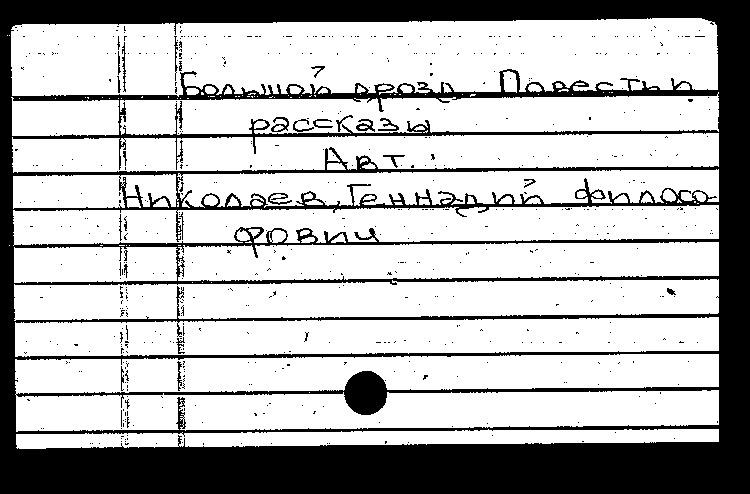 Большой дрозд. Повесть и
рассказы
Авт.:
Николаев, Геннадий филосо-
фович